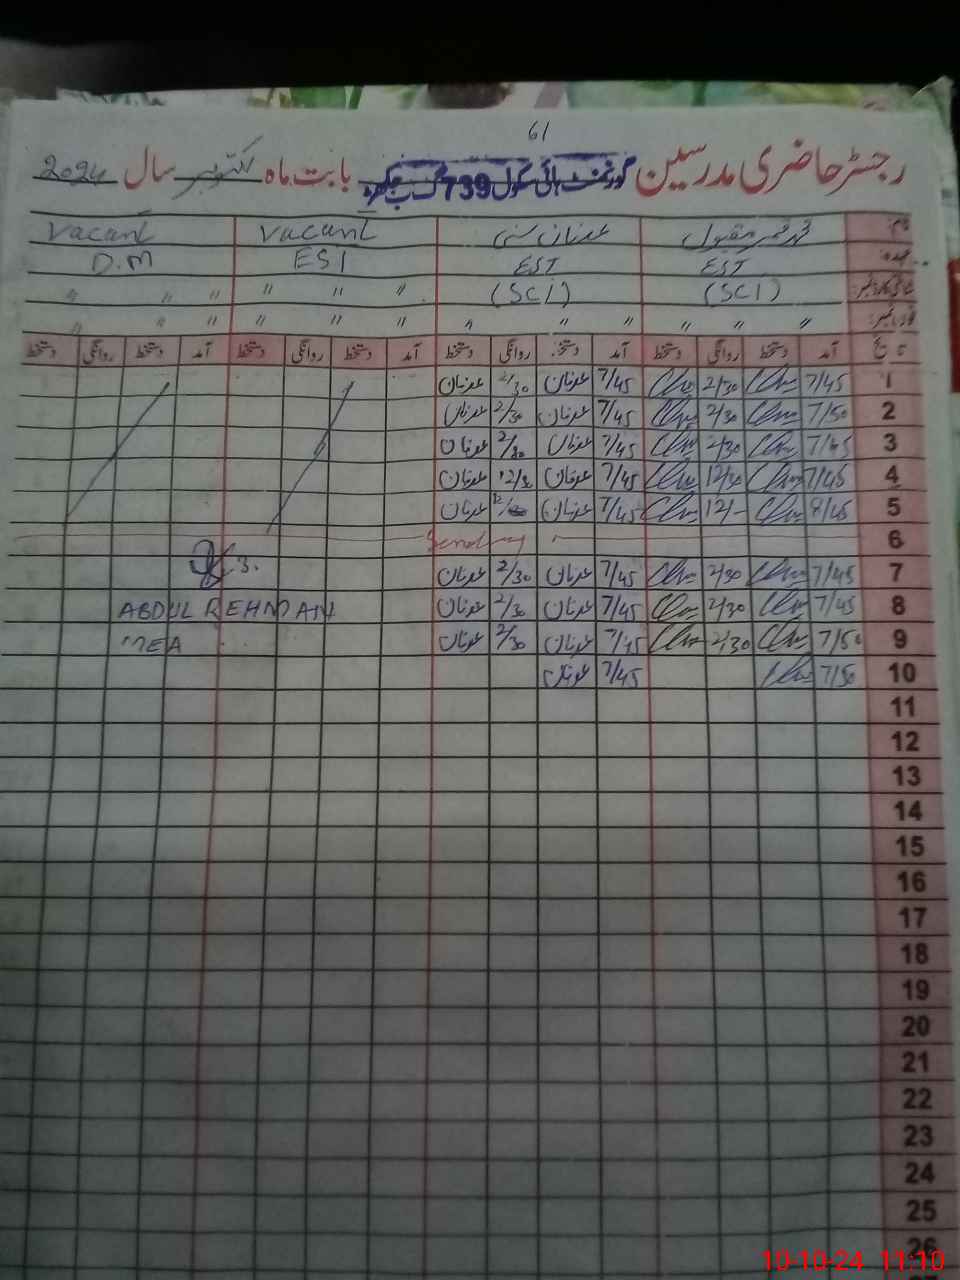 61
رجسٹر حاضری مدرسین گورنمنٹ ہائی سکول 739 گ ب بابت ماہ اکتوبر سال 2024
نام: محمد عمر مقبول عدنان سنی Vacant Vacant
عہدہ: EST EST ESI D.M
شناختی کارڈ نمبر: (SCI) (SCI) " " " " " "
" " " " " " " " " " " "
تاریخ آمد دستخط روانگی دستخط آمد دستخط روانگی دستخط آمد دستخط روانگی دستخط آمد دستخط روانگی دستخط
1 7/45 2/30 7/45 عدنان 2/30 عدنان
2 7/50 2/30 7/45 عدنان 2/30 عدنان
3 7/45 2/30 7/45 عدنان 2/30 عدنان
4 7/45 12/30 7/45 عدنان 12/30 عدنان
5 8/45 12/- 7/45 عدنان عدنان
6 Sunday
7 7/45 2/30 7/45 عدنان 2/30 عدنان
8 7/45 2/30 7/45 عدنان 2/30 عدنان ABDUL REHMAN
9 7/50 2/30 7/45 عدنان 2/30 عدنان MEA
10 7/50 7/45 عدنان
11
12
13
14
15
16
17
18
19
20
21
22
23
24
25
26
10-10-24 11:10